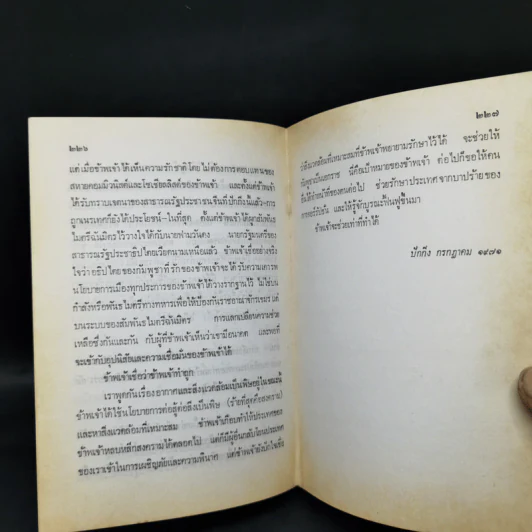 ๒๒๖
แต่ เมื่อข้าพเจ้าได้เห็นความรักชาติโดยไม่ต้องการตอบแทนของ
สหายคอมมิวนิสต์และโซเชียลลิสต์ของข้าพเจ้า และตั้งแต่ข้าพเจ้า
ได้รับทราบเจตนาของสาธารณรัฐประชาชนจีนที่ปักกิ่งนี้แล้ว-การ
ถูกเนรเทศก็ยังได้ประโยชน์-ในที่สุด ตั้งแต่ข้าพเจ้าได้ผูกสัมพันธ
ไมตรีฉันมิตรไว้วางใจได้กับนายฟามวันดง นายกรัฐมนตรีของ
สาธารณรัฐประชาธิปไตยเวียดนามเหนือแล้ว ข้าพเจ้าเชื่ออย่างจริง
ใจว่าอธิปไตยของกัมพูชาที่รักของข้าพเจ้าจะได้รับความเคารพ
นโยบายการเมืองทุกประการของข้าพเจ้าได้วางรากฐานไว้ ไม่ใช่บน
กำลังหรือพันธไมตรีทางทหารเพื่อให้ป้องกันราชอาณาจักรเขมร แต่
บนระบบของสัมพันธไมตรีฉันมิตร การแลกเปลี่ยนความช่วย
เหลือซึ่งกันและกัน กับผู้ที่ข้าพเจ้าเห็นว่าเขามีอนาคต และพอที่
จะเข้ากับอุปนิสัยและความเชื่อมั่นของข้าพเจ้าได้
ข้าพเจ้าเชื่อว่าข้าพเจ้าทำถูก
เราพูดกันเรื่องอากาศและสิ่งแวดล้อมเป็นพิษอยู่ในขณะนี้
ข้าพเจ้าได้ใช้นโยบายการต่อสู้ต่อสิ่งเป็นพิษ (ร้ายที่สุดคือสงคราม)
และหาสิ่งแวดล้อมที่เหมาะสม ข้าพเจ้าเกือบทำให้ประเทศของ
ข้าพเจ้าหลบหลีกสงครามได้ตลอดไป แต่ก็มีผู้อื่นกลับโยนประเทศ
ของเราเข้าในการเผชิญภัยและความพินาศ แต่ข้าพเจ้ายังนึกใจชื่อ
๒๒๗
ว่าสิ่งแวดล้อมที่เหมาะสมที่ข้าพเจ้าพยายามรักษาไว้ได้ จะช่วยให้
กัมพูชาเป็นเอกราช นี่คือเป้าหมายของข้าพเจ้า ต่อไปก็ขอให้คน
อื่นได้ทำหน้าที่ของตนต่อไป ช่วยรักษาประเทศจากบาปร้ายของ
และให้รู้จักบูรณะฟื้นฟูขึ้นมา
ข้าพเจ้าจะช่วยเท่าที่ทำได้
ปักกิ่ง กรกฎาคม ๑๙๗๑